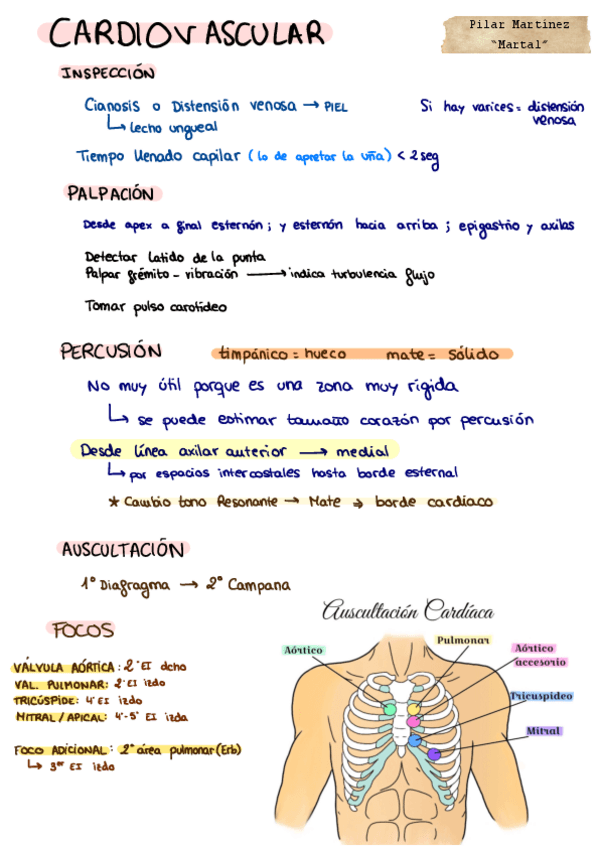 CARDIOVASCULAR
Pilar Martinez
"Martal"
INSPECCIÓN
Cianosis o Distensión venosa → PIEL
↳ lecho ungueal
Si hay varices = distensión
venosa
Tiempo llenado capilar (lo de apretar la uña) < 2 seg
PALPACIÓN
Desde apex a final esternón ; y esternón hacia arriba ; epigastrio y axilas
Detectar latido de la punta
Palpar frémito - vibración → indica turbulencia flujo
Tomar pulso carotídeo
PERCUSIÓN
timpánico = hueco mate = sólido
No muy útil porque es una zona muy rígida
↳ se puede estimar tamaño corazón por percusión
Desde línea axilar anterior → medial
↳ por espacios intercostales hasta borde esternal
* Cambio tono Resonante → Mate → borde cardiaco
AUSCULTACIÓN
1º Diafragma → 2º Campana
FOCOS
VÁLVULA AÓRTICA : 2º EI dcho
VAL. PULMONAR : 2º EI izdo
TRICÚSPIDE : 4º EI izdo
MITRAL / APICAL : 4º-5º EI izda
FOCO ADICIONAL : 2ª área pulmonar (Erb)
↳ 3er EI izdo
Auscultación Cardíaca
Aórtico
Pulmonar
Aórtico
accesorio
Tricuspideo
Mitral